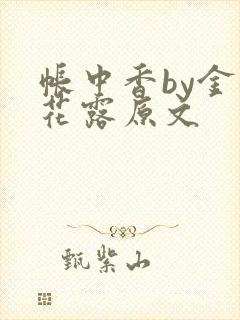 帐中香by金
花露原文
甄紫山